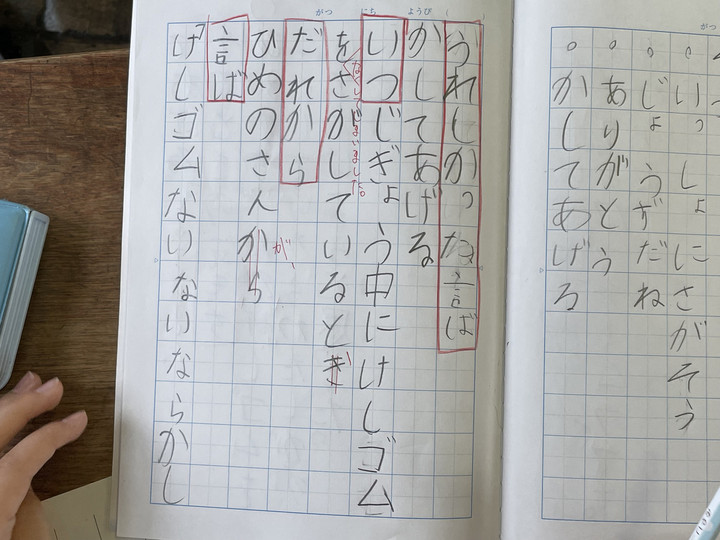 がつ
。いっしょにさがそう
。じょうずだね
。ありがとう
。かしてあげる
がつ にち ようび (
うれしかった言ば
かしてあげる
いつじぎょう中にけしゴム
をさがしているとき
なくしてしまいました。
だれから
が、
ひめのさんから
言ば
けしゴムないないならかし